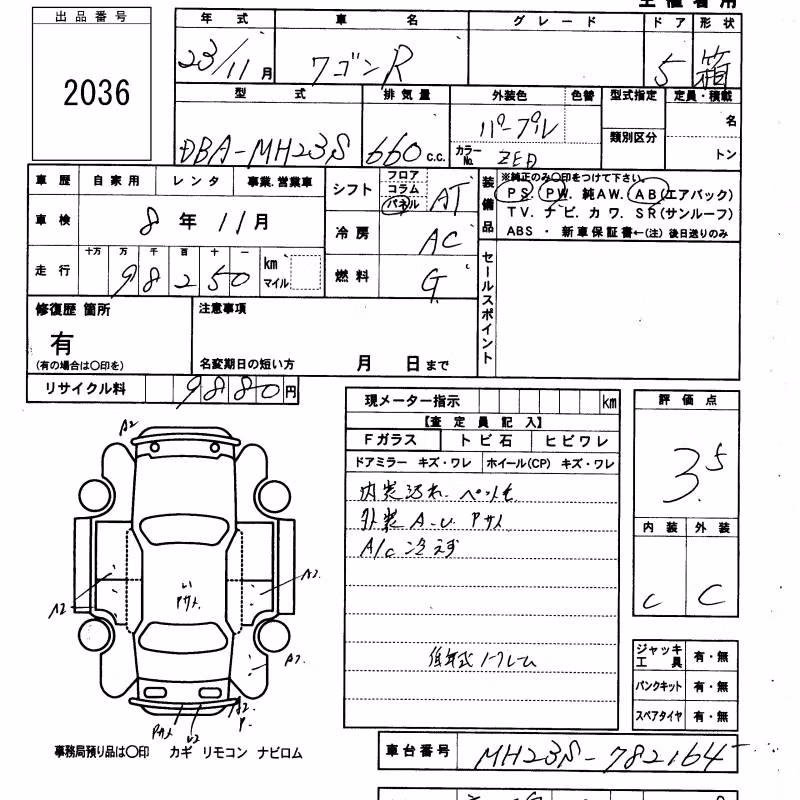 出品番号
2036
年式 車名 グレード ドア 形状
23/11月 ワゴンR 5 箱
型式 排気量 外装色 色替 型式指定 定員・積載
DBA-MH23S 660 c.c. パープル 類別区分 名
カラーNo. ZED トン
車歴 自家用 レンタ 事業.営業車
車検 8年 11月
走行 十万 万 千 百 十 一
98250 km マイル
シフト フロア コラム パネル AT
冷房 AC
燃料 G
装備品 ※純正のみ○印をつけて下さい。
PS. PW. 純AW. AB(エアバック)
TV. ナビ. カワ. SR(サンルーフ)
ABS ・ 新車保証書←(注) 後日送りのみ
セールスポイント
修復歴 箇所
有
(有の場合は○印を)
注意事項
名変期日の短い方 月 日まで
リサイクル料 9880円
現メーター指示 km
【査定員記入】
Fガラス トビ石 ヒビワレ
ドアミラー キズ・ワレ ホイール(CP) キズ・ワレ
内装汚れ
外装 A.U. Pサメ
A/c 冷えず
評価点
3.5
内装 外装
C C
A2
A2
A2
Pサメ
A2
A2
P
Pサメ
ジャッキ工具 有・無
パンクキット 有・無
スペアタイヤ 有・無
事務局預り品は○印 カギ リモコン ナビロム
車台番号 MH23S-782164